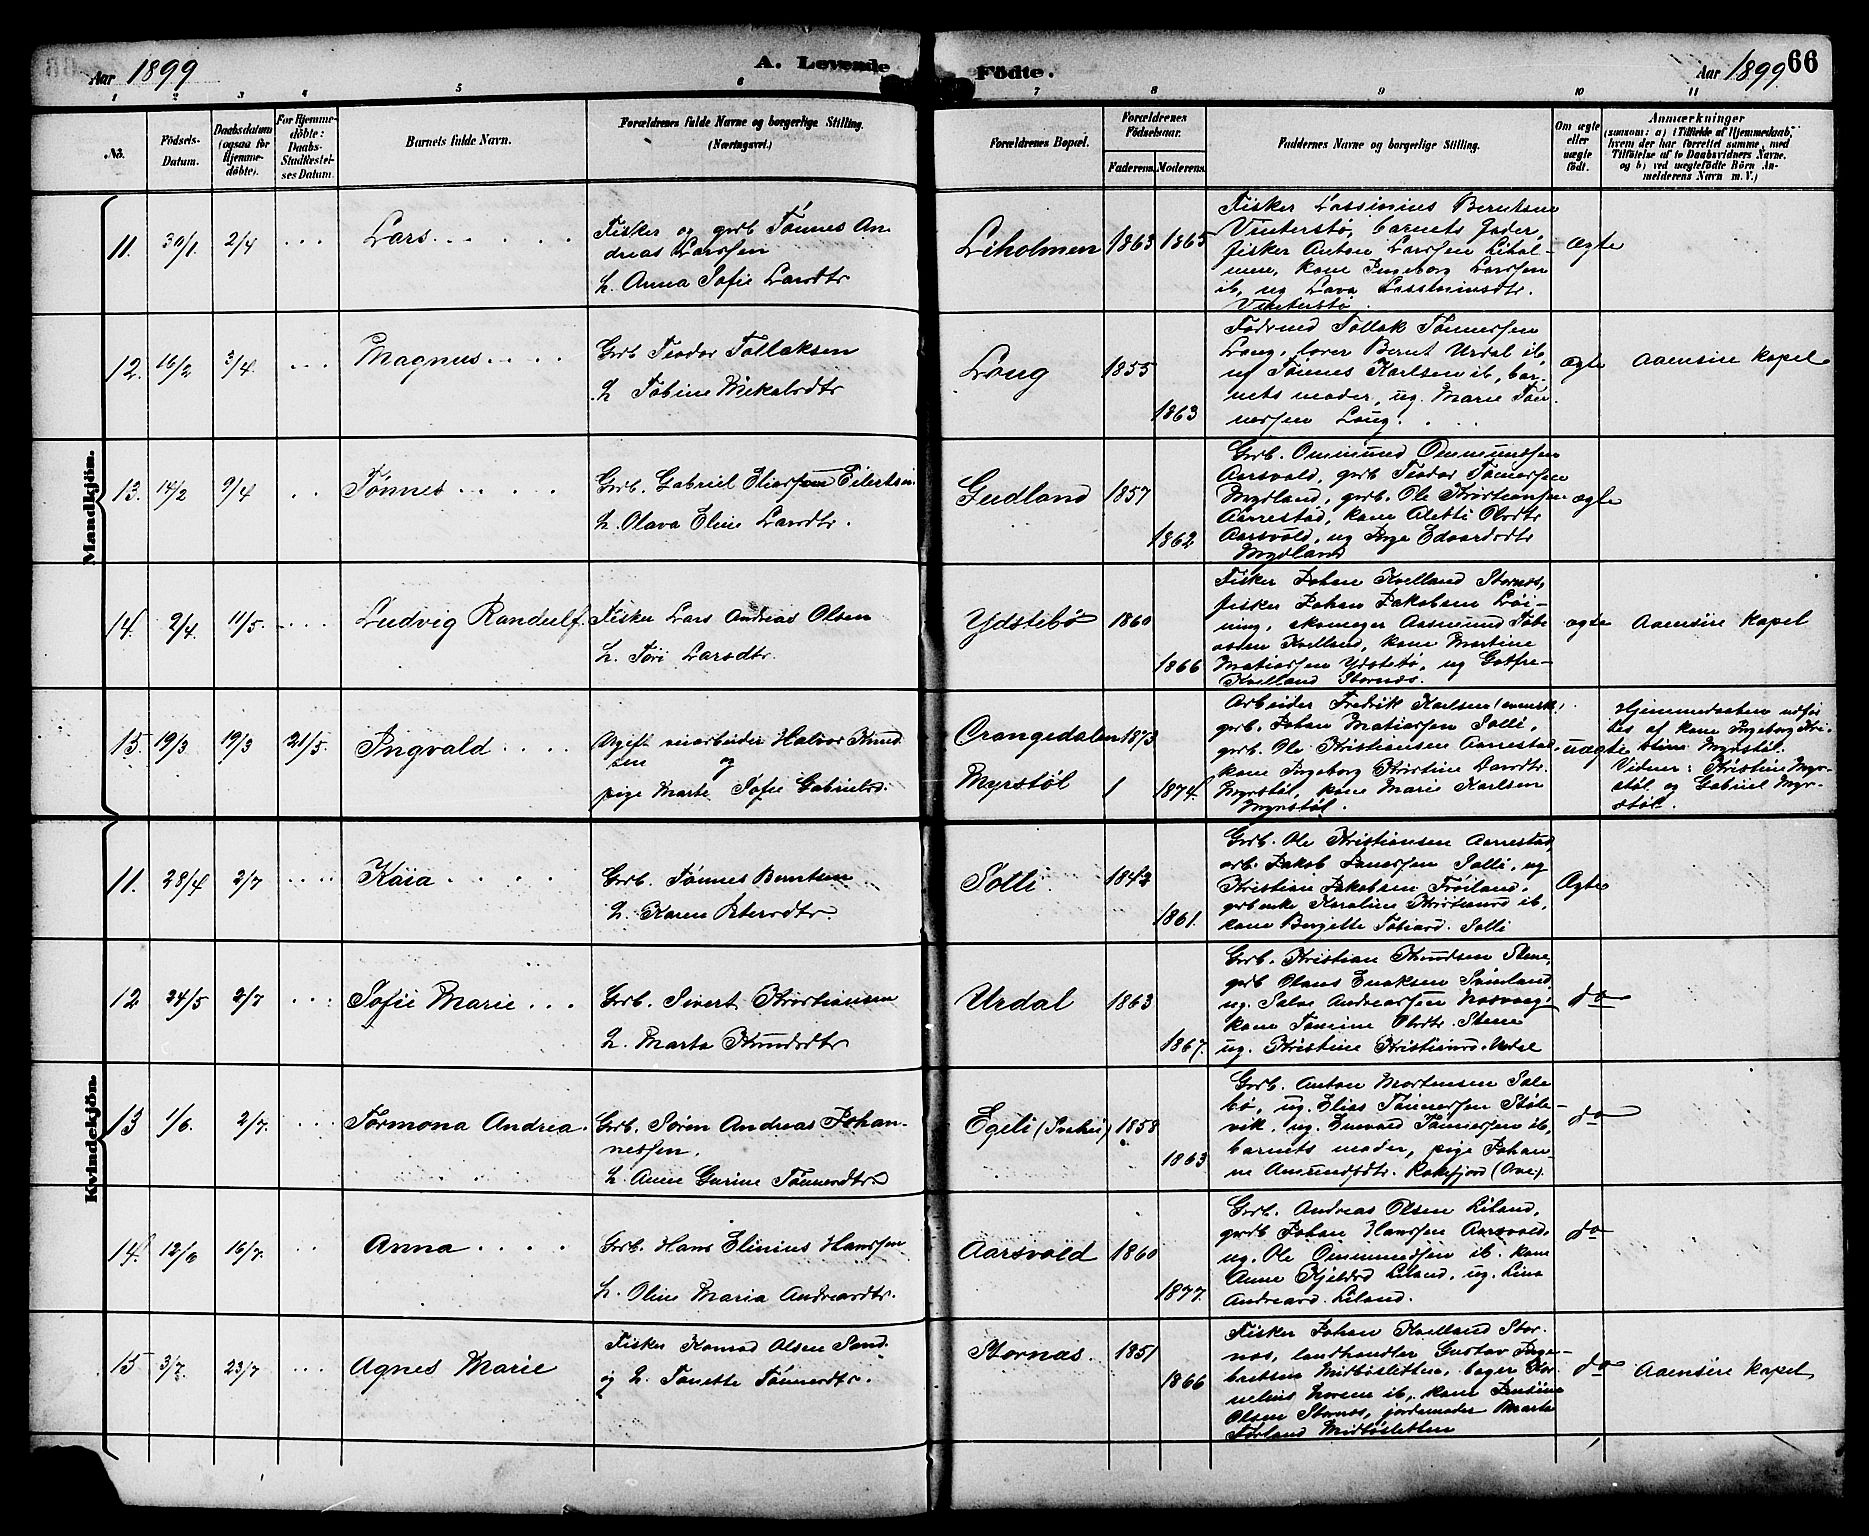 Aar 1899
A. Levende
Födte.
Aar 1899
66
1 2 3 4 5 6 7 8 9 10 11
No.
Födsels-
Datum.
Daabsdatum
(ogsaa for
Hjemme-
döbte).
For Hjemme-
döbte:
Daabs-
Stadfæstel-
ses Datum.
Barnets fulde Navn.
Forældrenes fulde Navne og borgerlige Stilling.
(Næringsvei.)
Forældrenes Bopæl.
Forældrenes
Födselsaar.
Faderens.
Moderens.
Faddernes Navne og borgerlige Stilling.
Om ægte
eller
uægte
födt.
Anmærkninger
(saasom: a) i Tilfælde af Hjemmedaab,
hvem der har forrettet samme, med
Tilföielse af to Daabsvidners Navne.
og b) ved uægtefödte Börn An-
melderens Navn m. V.)
Mandkjön.
11. 30/1. 2/4 Lars
Fisker og grdb Tønnes An-
dreas Larssen
h. Anna Sofie Larsdtr
Liholmen 1863 1865
Fisker Lassinius Berntsen
Vinterstø, barnets fader,
fisker Anton Larssen Lihol-
men, kone Ingeborg Larssen
ib, ug Lava Lassiniusdtr.
Vinterstø.
ægte
12. 16/2 3/4 Magnus
Grdb Teodor Tollaksen
h Tobine Mikalsdtr
Loug 1855 1863
Fødrmd Tollak Tønnessen
Loug, lærer Bernt Urdal ib,
ug Tønnes Karlsen ib, bar-
nets moder, ug. Marie Tøn-
nessen Loug.
ægte
Aaensire kapel
13. 14/2 9/4 Tønnes
Grdb. Gabriel Eliassen Eilertsen
h. Olava Eline Larsdtr.
Gudland 1857 1862
Grdb. Ommund Ommundsen
Aarsvold, grdb Teodor Tønnessen
Mydland, grdb. Ole Kristiansen
Aanestad, kone Aletti Olsdtr
Aarsvold, ug Inga Edvardsdtr
Mydland
ægte
14. 9/4. 11/5. Ludvig Randulf.
Fisker Lars Andreas Olsen
h. Tori Larsdtr.
Ydstebø 1860 1866
Fisker Johan Kvelland Stornæs,
fisker Johan Jakobsen Løi-
ning, skomager Aasmund Tobi-
assen Kvelland, kone Martine
Matiassen Ydstebø, ug Gotfre-
Kvelland Stornæs.
ægte
Aaensire Kapel
15. 19/3 19/3 21/5. Ingvald
Ugift veiarbeider Halvor Knud-
sen og
pige Marte Sofie Gabrielsd.
Drangedalen 1873
Myrstøl 1874.
Arbeider Fredrik Karlsen (svensk),
grdb. Johan Matiassen Solli,
grdb. Ole Kristiansen Aanestad,
kone Ingeborg Kristine Davidtr.
Myrstøl, kone Marie Karlsen
Myrstøl.
uægte
Hjemmedaaben udfør-
tes af kone Ingeborg Kri-
stine Myrstøl.
Vidner: Kristine Myr-
støl og Gabriel Myr-
støl.
Kvindekjön.
11. 28/4 2/7 Kaia
Grdb. Tønnes Berntsen
h. Karen Petersdtr.
Solli. 1842 1861.
Grdb. Ole Kristiansen Aanestad,
arb. Jakob Jonassen Solli, ug
Kristian Jakobsen Frøiland,
grdb enke Karoline Kristiansd ib,
kone Bergitte Tobiasd. Solli
Ægte
12 24/5 2/7 Sofie Marie
Grdb. Sivert Kristiansen
h. Marta Knudsdtr
Urdal 1863 1867.
Grdb. Kristian Knudsen Stene,
grdb Olaus Enoksen
ug. Salve Andreassen
kone Tomine Olsdtr. Stene
ug. Kristine Kristiansd. Urdal
do
13 1/6. 2/7. Tormona Andrea.
Grdb. Søren Andreas Johan-
nessen.
h. Anne Gurine Tønnesdtr.
Egeli 1858 1863
Grdb. Anton Mortensen Sole-
bø, ug. Elias Tønnessen Støle-
vik, ug. Enevald Tønnessen ib,
barnets moder, pige Johan-
ne Amundsdtr. Rekefjord
do
14. 12/6 16/7. Anna
Grdb. Hans Elinius Hanssen
h. Oline Maria Andreasdtr.
Aarsvold 1860 1877.
Grdb. Andreas Olsen Liland,
grdb Johan Hanssen Aarsvold,
ug. Ole Ommundsen ib. kone
Anne Kjelsd Liland, ug. Lina
Andreasd. Liland.
do
15 3/7. 23/7 Agnes Marie
Fisker Konrad Olsen Sand.
og h. Tonette Tønnesdtr.
Stornæs. 1851 1866
Fisker Johan Kvelland Stor-
næs, landhandler Gustav Inge-
bretsen Midbøsletten, bager Kor-
nelius ib, kone
Olsen Stornæs, jordemoder Marta
Førland Midbøsletten
do
Aaensire kapel